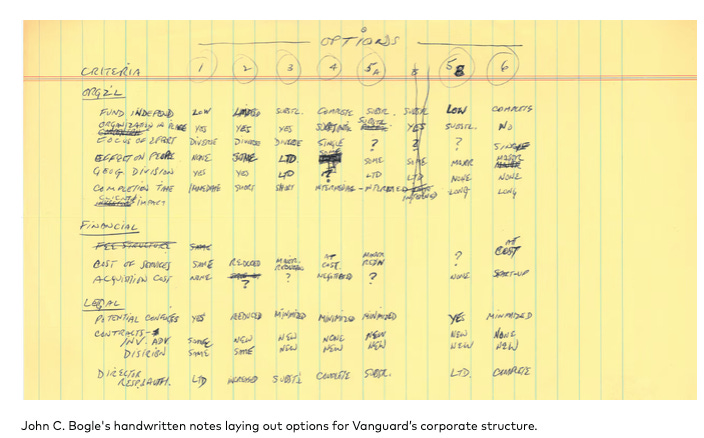 OPTIONS
CRITERIA 1 2 3 4 5A 5 5B 6
ORGZ'L
FUND INDEPEND LOW LIMITED SUBST'L COMPLETE SUBST. SUBST. LOW COMPLETE
ORGANIZATION IN PLACE YES YES YES SUBST'L YES SUBST'L. NO
FOCUS OF EFFORT DIVERSE DIVERSE DIVERSE SINGLE ? ? ? SINGLE
EFFECT ON PEOPLE NONE SOME LTD SOME SOME MAJOR MAJOR
GEOG DIVISION YES YES LTD ? LTD LTD NONE NONE
COMPLETION TIME IMMEDIATE SHORT SHORT INTERMED. INTERMED INTERMED LONG LONG
IMPACT
FINANCIAL
FEE STRUCTURE SAME
COST OF SERVICES SAME REDUCED MAJOR REDUC. AT COST. MAJOR REDN ? AT COST
ACQUISITION COST NONE ? ? NEGOTIATED ? NONE START-UP
LEGAL
POTENTIAL CONFLICTS YES REDUCED MINIMIZED MINIMIZED MINIMIZED YES MINIMIZED
CONTRACTS-
INV. ADV SAME NEW NEW NONE NEW NEW NONE
DISTRIB'ION SAME SAME NEW NEW NEW NEW NEW
DIRECTOR RESP./AUTH. LTD INCREASED SUBST'L COMPLETE SUBST. LTD. COMPLETE
John C. Bogle's handwritten notes laying out options for Vanguard's corporate structure.